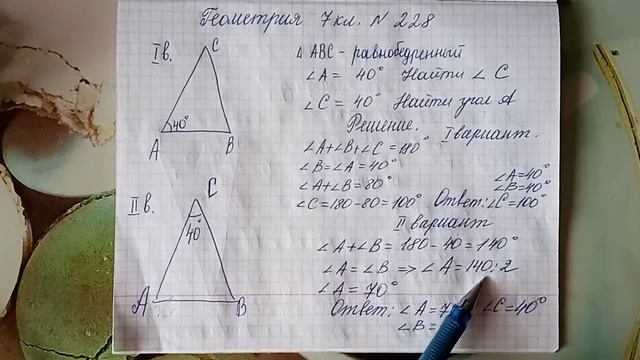 Геометрия 7 кл. N 228
I в.
C
40°
A
B
△ ABC - равнобедренный
∠A = 40° Найти ∠C
∠C = 40° Найти угол A
Решение.
I вариант.
∠A+∠B+∠C=180°
∠B=∠A=40°
∠A+∠B=80°
∠C=180-80=100°
∠A=40°
∠B=40°
Ответ: ∠C=100°
II в.
C
40°
A
B
II вариант
∠A+∠B=180-40=140°
∠A=∠B => ∠A=140:2
∠A=70°
Ответ: ∠A=7 ∠C=40°
∠B=